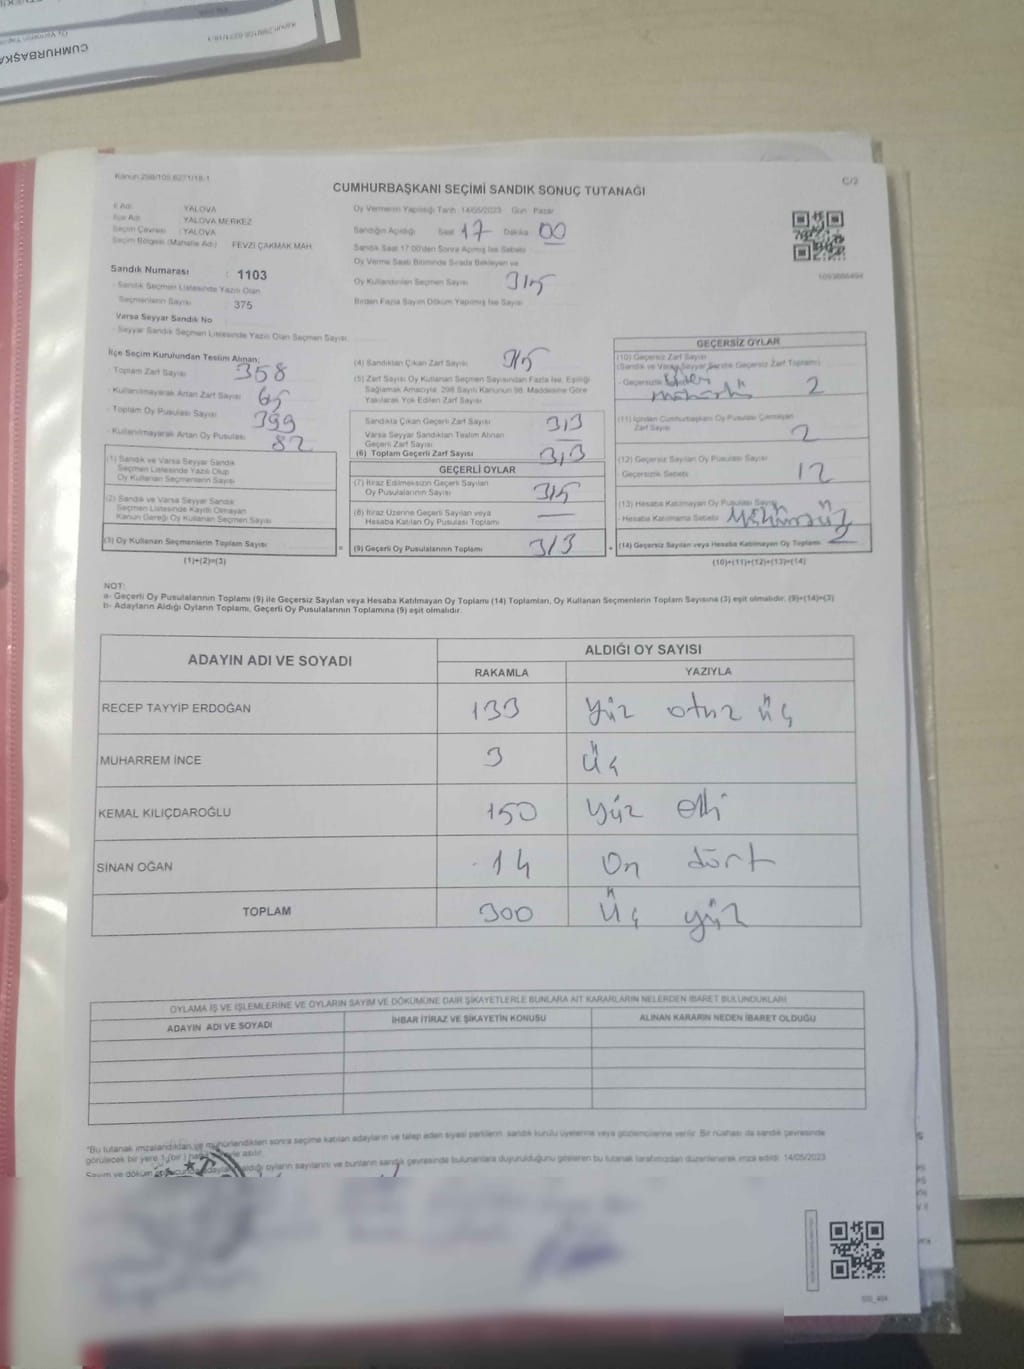 CUMHURBAŞKA
Kanun 298/105.6271/18-1
C/2
CUMHURBAŞKANI SEÇİMİ SANDIK SONUÇ TUTANAĞI
İl Adı YALOVA
İlçe Adı YALOVA MERKEZ
Seçim Çevresi : YALOVA
Seçim Bölgesi (Mahalle Adı) FEVZİ ÇAKMAK MAH.
Sandık Numarası : 1103
- Sandık Seçmen Listesinde Yazılı Olan
Seçmenlerin Sayısı 375
Varsa Seyyar Sandık No
- Seyyar Sandık Seçmen Listesinde Yazılı Olan Seçmen Sayısı
Oy Vermenin Yapıldığı Tarih 14/05/2023 Gün Pazar
Sandığın Açıldığı Saat 17 Dakika 00
Sandık Saat 17:00'den Sonra Açılmış İse Sebebi
Oy Verme Saati Bitiminde Sırada Bekleyen ve
Oy Kullandırılan Seçmen Sayısı 315
Birden Fazla Sayım Döküm Yapılmış İse Sayısı
İlçe Seçim Kurulundan Teslim Alınan;
Toplam Zarf Sayısı 358
- Kullanılmayarak Artan Zarf Sayısı 65
- Toplam Oy Pusulası Sayısı 399
- Kullanılmayarak Artan Oy Pusulası 82
(1) Sandık ve Varsa Seyyar Sandık
Seçmen Listesinde Yazılı Olup
Oy Kullanan Seçmenlerin Sayısı
(2) Sandık ve Varsa Seyyar Sandık
Seçmen Listesinde Kayıtlı Olmayan
Kanun Gereği Oy Kullanan Seçmen Sayısı
(3) Oy Kullanan Seçmenlerin Toplam Sayısı
(1)+(2)=(3)
(4) Sandıktan Çıkan Zarf Sayısı 315
(5) Zarf Sayısı Oy Kullanan Seçmen Sayısından Fazla İse, Eşitliği
Sağlamak Amacıyla, 298 Sayılı Kanunun 98. Maddesine Göre
Yakılarak Yok Edilen Zarf Sayısı
Sandıkta Çıkan Geçerli Zarf Sayısı 313
Varsa Seyyar Sandıktan Teslim Alınan
Geçerli Zarf Sayısı —
(6) Toplam Geçerli Zarf Sayısı 313
GEÇERLİ OYLAR
(7) İtiraz Edilmeksizin Geçerli Sayılan
Oy Pusulalarının Sayısı 315
(8) İtiraz Üzerine Geçerli Sayılan veya
Hesaba Katılan Oy Pusulası Toplamı —
= (9) Geçerli Oy Pusulalarının Toplamı 313
GEÇERSİZ OYLAR
(10) Geçersiz Zarf Sayısı
(Sandık ve Varsa Seyyar Sandık Geçersiz Zarf Toplamı)
- Geçersizlik 2
(11) İçinden Cumhurbaşkanı Oy Pusulası Çıkmayan
Zarf Sayısı 2
(12) Geçersiz Sayılan Oy Pusulası Sayısı
Geçersizlik Sebebi 12
(13) Hesaba Katılmayan Oy Pusulası Sayısı
- Hesaba Katılmama Sebebi Mühürsüz 2
+ (14) Geçersiz Sayılan veya Hesaba Katılmayan Oy Toplamı
(10)+(11)+(12)+(13)=(14)
NOT:
a- Geçerli Oy Pusulalarının Toplamı (9) ile Geçersiz Sayılan veya Hesaba Katılmayan Oy Toplamı (14) Toplamları, Oy Kullanan Seçmenlerin Toplam Sayısına (3) eşit olmalıdır. (9)+(14)=(3)
b- Adayların Aldığı Oyların Toplamı, Geçerli Oy Pusulalarının Toplamına (9) eşit olmalıdır.
ADAYIN ADI VE SOYADI
ALDIĞI OY SAYISI
RAKAMLA YAZIYLA
RECEP TAYYİP ERDOĞAN 133 yüz otuz üç
MUHARREM İNCE 3 üç
KEMAL KILIÇDAROĞLU 150 yüz elli
SİNAN OĞAN 14 on dört
TOPLAM 300 üç yüz
OYLAMA İŞ VE İŞLEMLERİNE VE OYLARIN SAYIM VE DÖKÜMÜNE DAİR ŞİKAYETLERLE BUNLARA AİT KARARLARIN NELERDEN İBARET BULUNDUKLARI
ADAYIN ADI VE SOYADI İHBAR İTİRAZ VE ŞİKAYETİN KONUSU ALINAN KARARIN NEDEN İBARET OLDUĞU
"Bu tutanak imzalandıktan ve mühürlendikten sonra seçime katılan adayların ve talep eden siyasi partilerin, sandık kurulu üyelerine veya gözlemcilerine verilir. Bir nüshası da sandık çevresinde
görülecek bir yere 1 (bir) asılır.
Sayım ve döküm oyların sayılarını ve bunların sandık çevresinde bulunanlara duyurulduğunu gösteren bu tutanak tarafımızdan düzenlenerek imza edildi. 14/05/2023